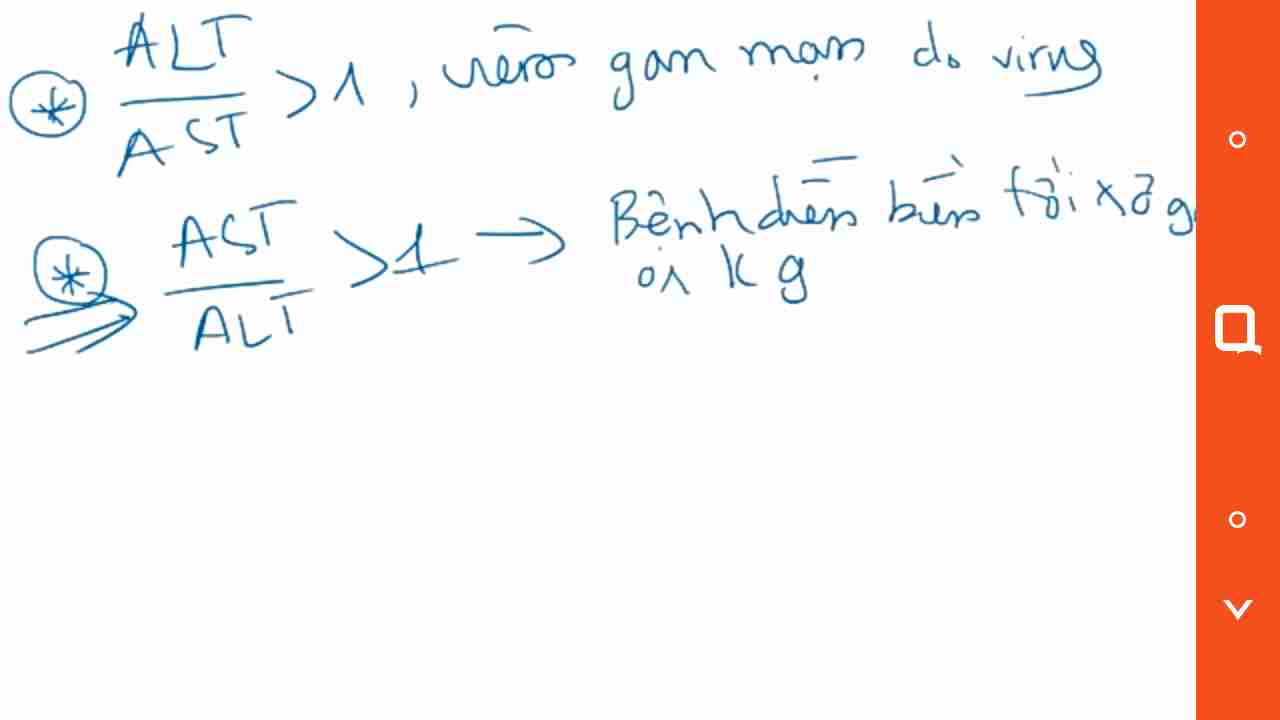 * ALT
AST >1, viêm gan mạn do virus
* AST
ALT >1 → Bệnh diễn biến tới xơ g
K g